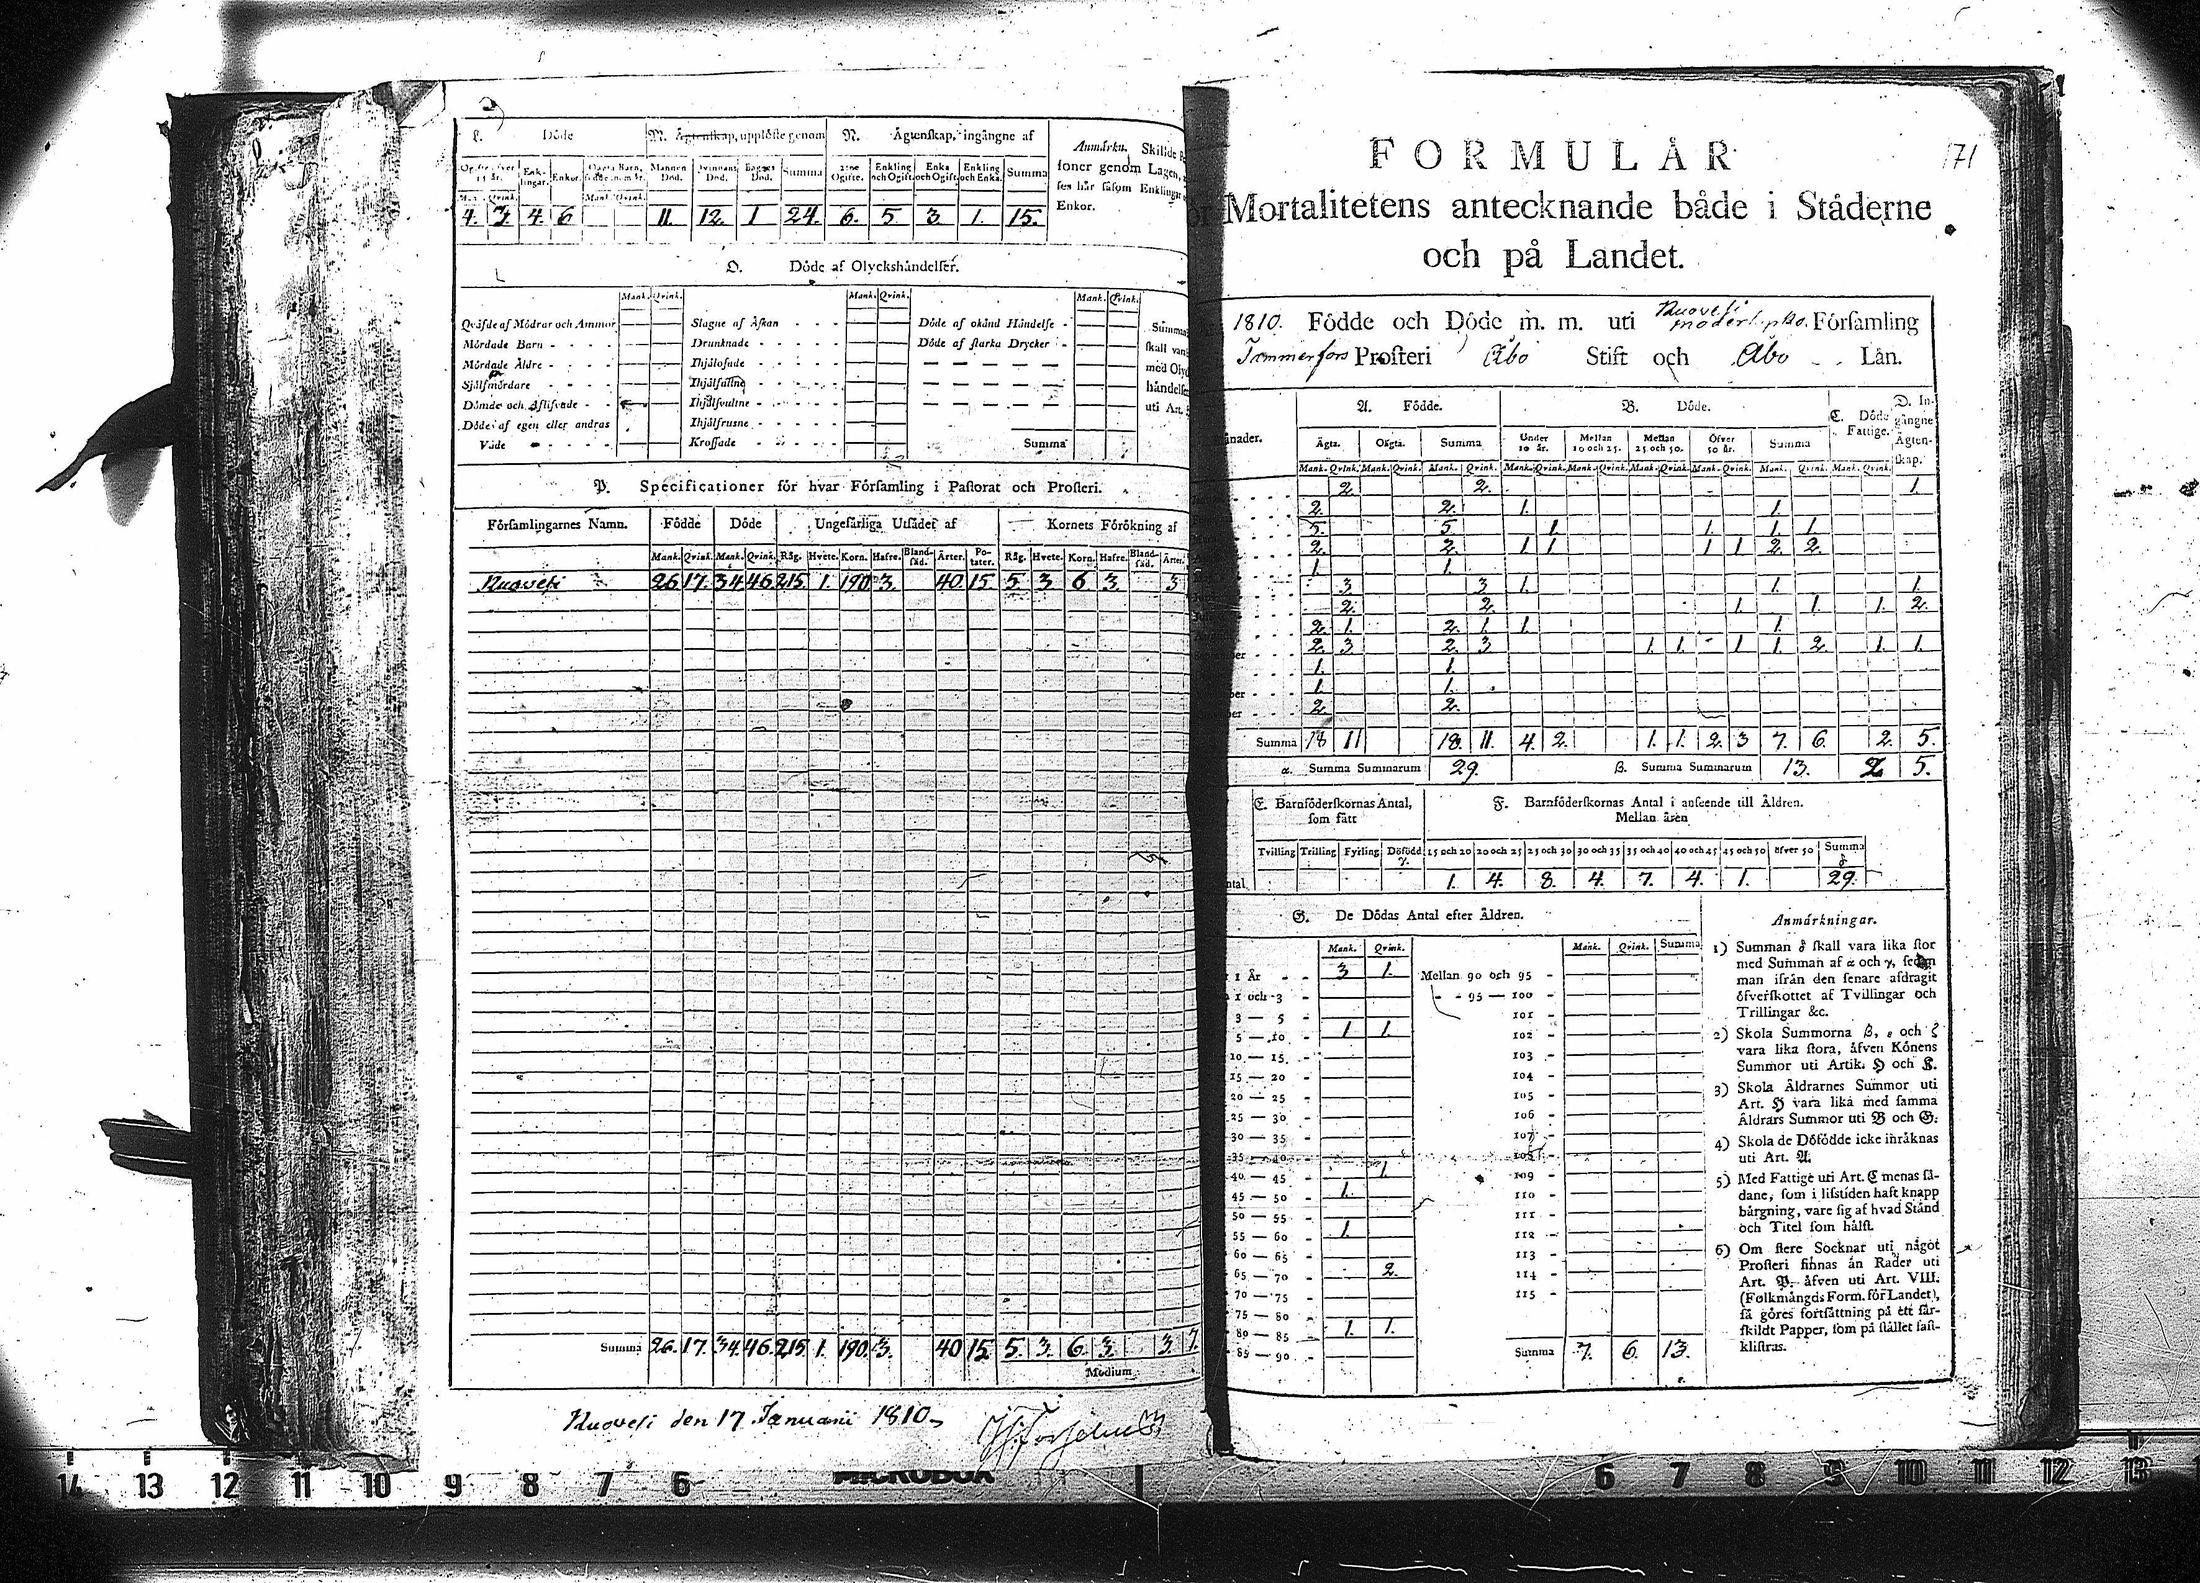 L. Döde
M. Ägtenskap, upplöste genom
N. Ägtenskap, ingångne af
Anmärkn. Skilde
soner genom Lagen,
ses här såsom Enklingar
Enkor.
Enk-lingar. Enkor.
Mannens Död. Qvinnans Död. Bägges Död. Summa
Ogifte. Enkling och Ogift. Enka och Ogift. Enkling och Enka. Summa
4. 3. 4. 6 11. 12. 1 24. 6. 5. 3 1. 15.
O. Döde af Olyckshändelser.
Mank. Qvink. Mank. Qvink. Mank. Qvink.
Qväfde af Mödrar och Ammor Slagne af Åskan - - - Döde af okänd Händelse -
Mördade Barn - - - - Drunknade - - - - - Döde af starka Drycker -
Mördade Äldre - - - - Ihjälosade - - - -
Sjelfmördare - - - - Ihjälfallne - - - -
Dömde och Aflifvade - - Ihjälsvultne - - - -
Döde af egen eller andras Ihjälfrusne - - - -
Våde - - - - Krossade - - - - - Summa
Summa
skall vara
med Olyc
händelse
uti Art.
P. Specificationer för hvar Församling i Pastorat och Prosteri.
Församlingarnes Namn. Födde Döde Ungefärliga Utsädet af Kornets Förökning af
Mank. Qvink. Mank. Qvink. Råg. Hvete. Korn. Hafre. Bland-säd. Ärter. Po-tater. Råg. Hvete. Korn. Hafre. Bland-säd. Ärter.
Ruovesi 26. 17. 34. 46. 215. 1. 190. 3. 40. 15. 5. 3. 6. 3. 3
Summa 26. 17. 34. 46. 215. 1. 190. 3. 40 15. 5. 3. 6. 3. 3. 7.
Medium
Ruovesi den 17 Januarii 1810
171
FORMULÄR
Mortalitetens antecknande både i Städerne
och på Landet.
1810. Födde och Döde m. m. uti Ruovesi Församling
Tammerfors Prosteri Åbo Stift och Åbo Län.
A. Födde. B. Döde. C. Döde Fattige. D. In-gångne Ägten-skap.
Ägta. Oägta. Summa Under 10 år. Mellan 10 och 25. Mellan 25 och 50. Öfver 50 år. Summa
Mank. Qvink. Mank. Qvink. Mank. Qvink. Mank. Qvink. Mank. Qvink. Mank. Qvink. Mank. Qvink. Mank. Qvink. Mank. Qvink.
2. 2. 1.
2. 2. 1. 1.
5. 5 1. 1. 1. 1
2. 2. 1 1 1 1 2 2.
1. 1.
3 3 1. 1. 1
2. 2. 1. 1. 1. 2.
2. 1. 2. 1. 1. 1.
2. 3 2. 3 1. 1. 1 1. 2. 1. 1.
1. 1.
1. 1.
2. 2.
Summa 18 11 18. 11. 4. 2. 1. 1. 2. 3 7. 6. 2. 5.
α. Summa Summarum 29. β. Summa Summarum 13. 2 5.
E. Barnföderskornas Antal,
som fått
F. Barnföderskornas Antal i anseende till Åldren.
Mellan åren
Tvilling Trilling Fyrling Döfödd γ. 15 och 20 20 och 25 25 och 30 30 och 35 35 och 40 40 och 45 45 och 50 öfver 50 Summa δ
1. 4. 8. 4. 7. 4. 1. 29.
G. De Dödas Antal efter Åldren.
Mank. Qvink. Mank. Qvink. Summa
1 År - - 3 1. Mellan 90 och 95 -
1 och 3 - - - 95 — 100 -
3 — 5 101 -
5 — 10 - 1 1. 102 -
10 — 15 - 103 -
15 — 20 104 -
20 — 25 - 105 -
25 — 30 - 106 -
30 — 35 - 107 -
35 — 40 - 108 -
40 — 45 - 1. 109 -
45 — 50 - 1. 110 -
50 — 55 - 111 -
55 — 60 - 1. 112 -
60 — 65 - 113 -
65 — 70 - 2. 114 -
70 — 75 - 115 -
75 — 80 -
80 — 85 - 1. 1.
85 — 90 - Summa 7. 6. 13.
Anmärkningar.
1) Summan δ skall vara lika stor
med Summan af α och γ, sedan
man ifrån den senare afdragit
öfverskottet af Tvillingar och
Trillingar &c.
2) Skola Summorna β, ε och ζ
vara lika stora, äfven Könens
Summor uti Artik. H och K.
3) Skola Åldrarnes Summor uti
Art. H vara lika med samma
Åldrars Summor uti B och G.
4) Skola de Döfödde icke inräknas
uti Art. A.
5) Med Fattige uti Art. C menas så-
dane, som i lifstiden haft knapp
bärgning, vare sig af hvad Stånd
och Titel som hälst.
6) Om flere Socknar uti något
Prosteri finnas än Rader uti
Art. P. äfven uti Art. VIII.
(Folkmängds Form. för Landet),
så göres fortsättning på ett sär-
skildt Papper, som på stället fast-
klistras.
14 13 12 11 10 9 8 7 6 MICROBOX 6 7 8 9 10 11 12 13